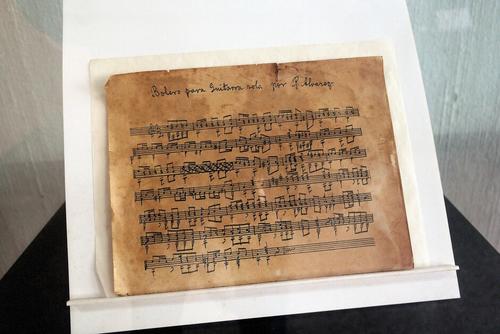 Bolero para Guitarra sola por R. Alvarez.